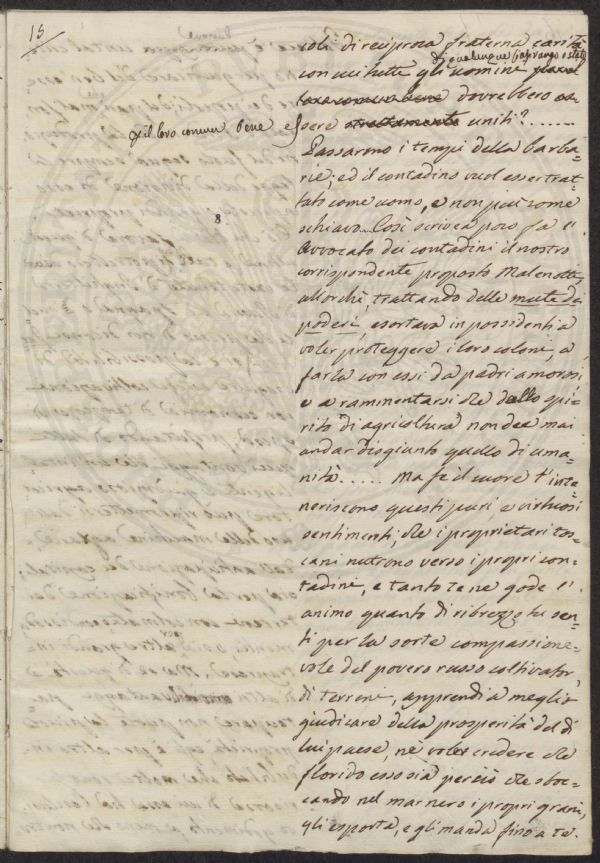 15
coli di reciproca fraterna carità
di qualunque sia rango e stato
con cui tutte gli uomini
dovrebbero es=
e il loro comun bene
sere strettamente uniti? .....
Passarono i tempi della barba=
rie; ed il contadino vuol esser trat=
tato come uomo, e non più come
schiavo. Così scrivea poco fa l'
Avvocato dei contadini il nostro
corrispondente proposto Malenotti,
allorchè, trattando delle mute de
poderi, esortava i possidenti a
voler proteggere i loro coloni, a
farla con essi da padri amorosi,
e a rammentarsi che dallo spi=
rito di agricoltura non dee mai
andar disgiunto quello di uma=
nità ..... Ma se il cuore t'inte=
neriscono questi puri e virtuosi
sentimenti, che i proprietari tos=
cani nutrono verso i propri con=
tadini, e tanto te ne gode l'
animo quanto di ribrezzo tu sen=
ti per la sorte compassione=
vole del povero russo coltivator
di terreni, apprendi a meglio
giudicare della prosperità del di
lui paese, nè voler credere che
florido esso sia perciò che sboc=
cando nel mar nero i propri grani,
gli esporta, e gli manda fino a te.
8